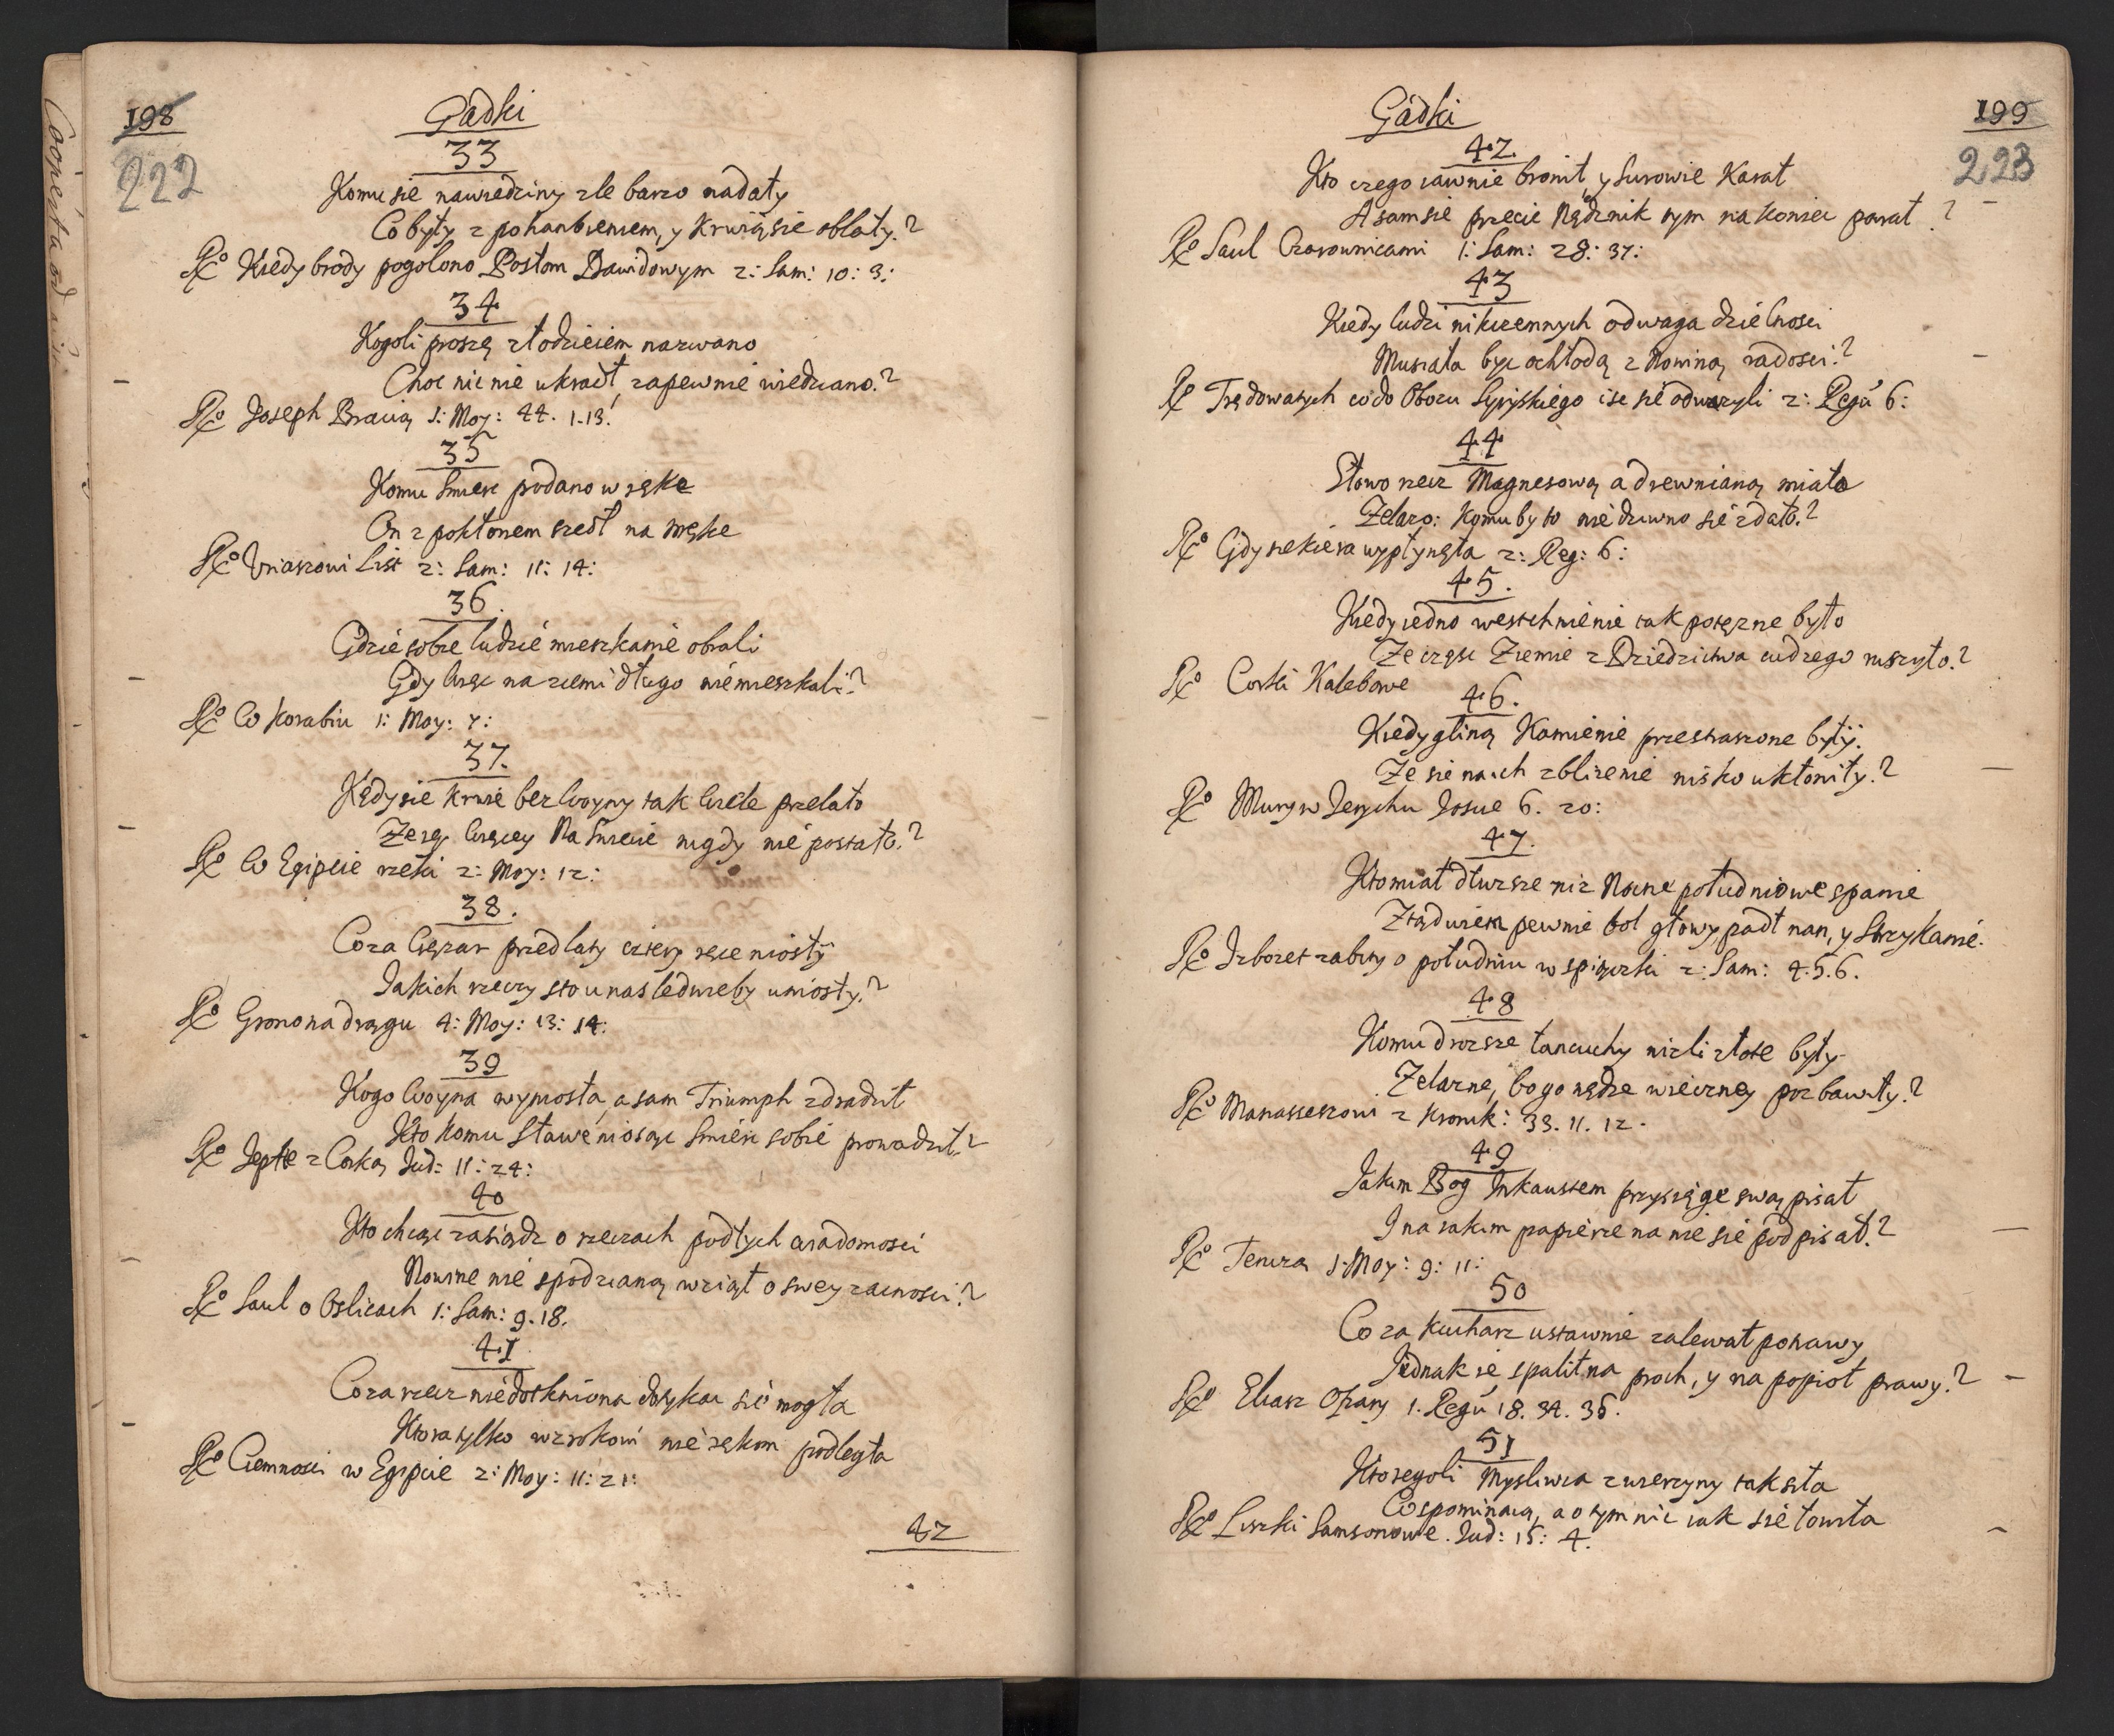 198
222
Gadki
33
Komu sie nawiedziny zle barzo nadały
Co były z pohanbieniem, y krwią sie oblały?
Rx° Kiedy brody pogolono Posłom Dawidowym 2: Sam: 10: 3:
34
Kogoli proszą złodzieiem nazwano
Choc nic nie ukradł, zapewnie wiedziano?
Rx° Joseph Bracią 1: Moy: 44. 1.13.
35
Komu smierc podano w ręke
On z pokłonem szedł na męke
Rx° Uriaszowi List 2: Sam: 11: 14:
36.
Gdzie sobie ludzie mieszkanie obrali
Gdy chcąc na ziemi długo nie mieszkali?
Rx° W Korabiu 1: Moy: 7:
37.
Kędy sie krwie bez Woyny tak wiele przelało
Ze iey więcey Na Swiecie nigdy nie postało?
Rx° W Egipcie rzeki 2: Moy: 12:
38.
Co za Ciężar przed laty cztery ręce niosły
Jakich rzeczy sto u nas ledwieby uniosły?
Rx° Grono na drągu 4: Moy: 13: 14:
39
Kogo Woyna wyniosła, a sam Triumph zdradził
Kto komu sławe niosąc smierc sobie prowadził?
Rx° Jepte z Corką Jud: 11: 24:
40
Kto chcąc zasiądz o rzeczach podłych wiadomosci
Nowine nie spodzianą wziął o swey zacnosci?
Rx° Saul o Oslicach 1: Sam: 9. 18.
41
Co za rzecz niedotkniona dotykac sie mogła
Ktora tylko wzrokowi nie rękom podległa
Rx° Ciemnosci w Egipcie 2: Moy: 11: 21:
42
199
223
Gádki
42.
Kto czego iawnie bronił, y surowie karał
A sam sie przecie Nędznik tym na koniec parał?
Rx° Saul Czarownicami 1: Sam: 28: 37:
43
Kiedy ludzi nikczemnych odwaga dzielnosci
Musiała byc ochłodą z Nowiną radosci?
Rx° Trędowatych co do Obozu Syryskiego isc sie odwazyli 2: Regu 6:
44
Słowo rzecz Magnesową a drewnianą miało
Zelazo: komu by to nie dziwno sie zdało?
Rx° Gdy siekiera wypłynęła 2: Reg: 6:
45.
Kiedy iedno westchnienie tak potęzne było
Ze częsc Ziemie z Dziedzictwa cudzego ruszyło?
Rx° Corki Kalebowe
46.
Kiedy gliną Kamienie przestraszone były.
Ze sie na ich zblizenie nisko ukłoniły?
Rx° Mury w Jerychu Josue 6. 20:
47.
Kto miał dłuzsze niz Nocne południowe spanie
Ztąd wiem pewnie bol głowy padł nan, y strzykanie.
Rx° Izboset zabity o południu w spiączki 2: Sam: 4. 5. 6.
48
Komu drozsze łancuchy nizli złote były
Zelazne, bo go nędze wieczney pozbawiły?
Rx° Manassesowi 2 Kronik: 33. 11. 12.
49
Jakim Bog Inkaustem przysięge swą pisał
I na iakim papierze na nie sie podpisał?
Rx° Tencza 1: Moy: 9: 11:
50
Co za kucharz ustawnie zalewał potrawy
Jednak ie spalił na proch, y na popioł prawy?
Rx° Eliasz Ofiary 1. Regu 18. 34. 35.
51
Ktoregoli Mysliwca zwierzyny tak siła
Wspominaią, a o tym nic iak sie łowiła
Rx° Liszki Samsonowe. Jud: 15: 4.